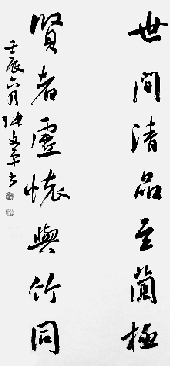 世間清品至蘭極
賢者虛懷與竹同
壬辰六月